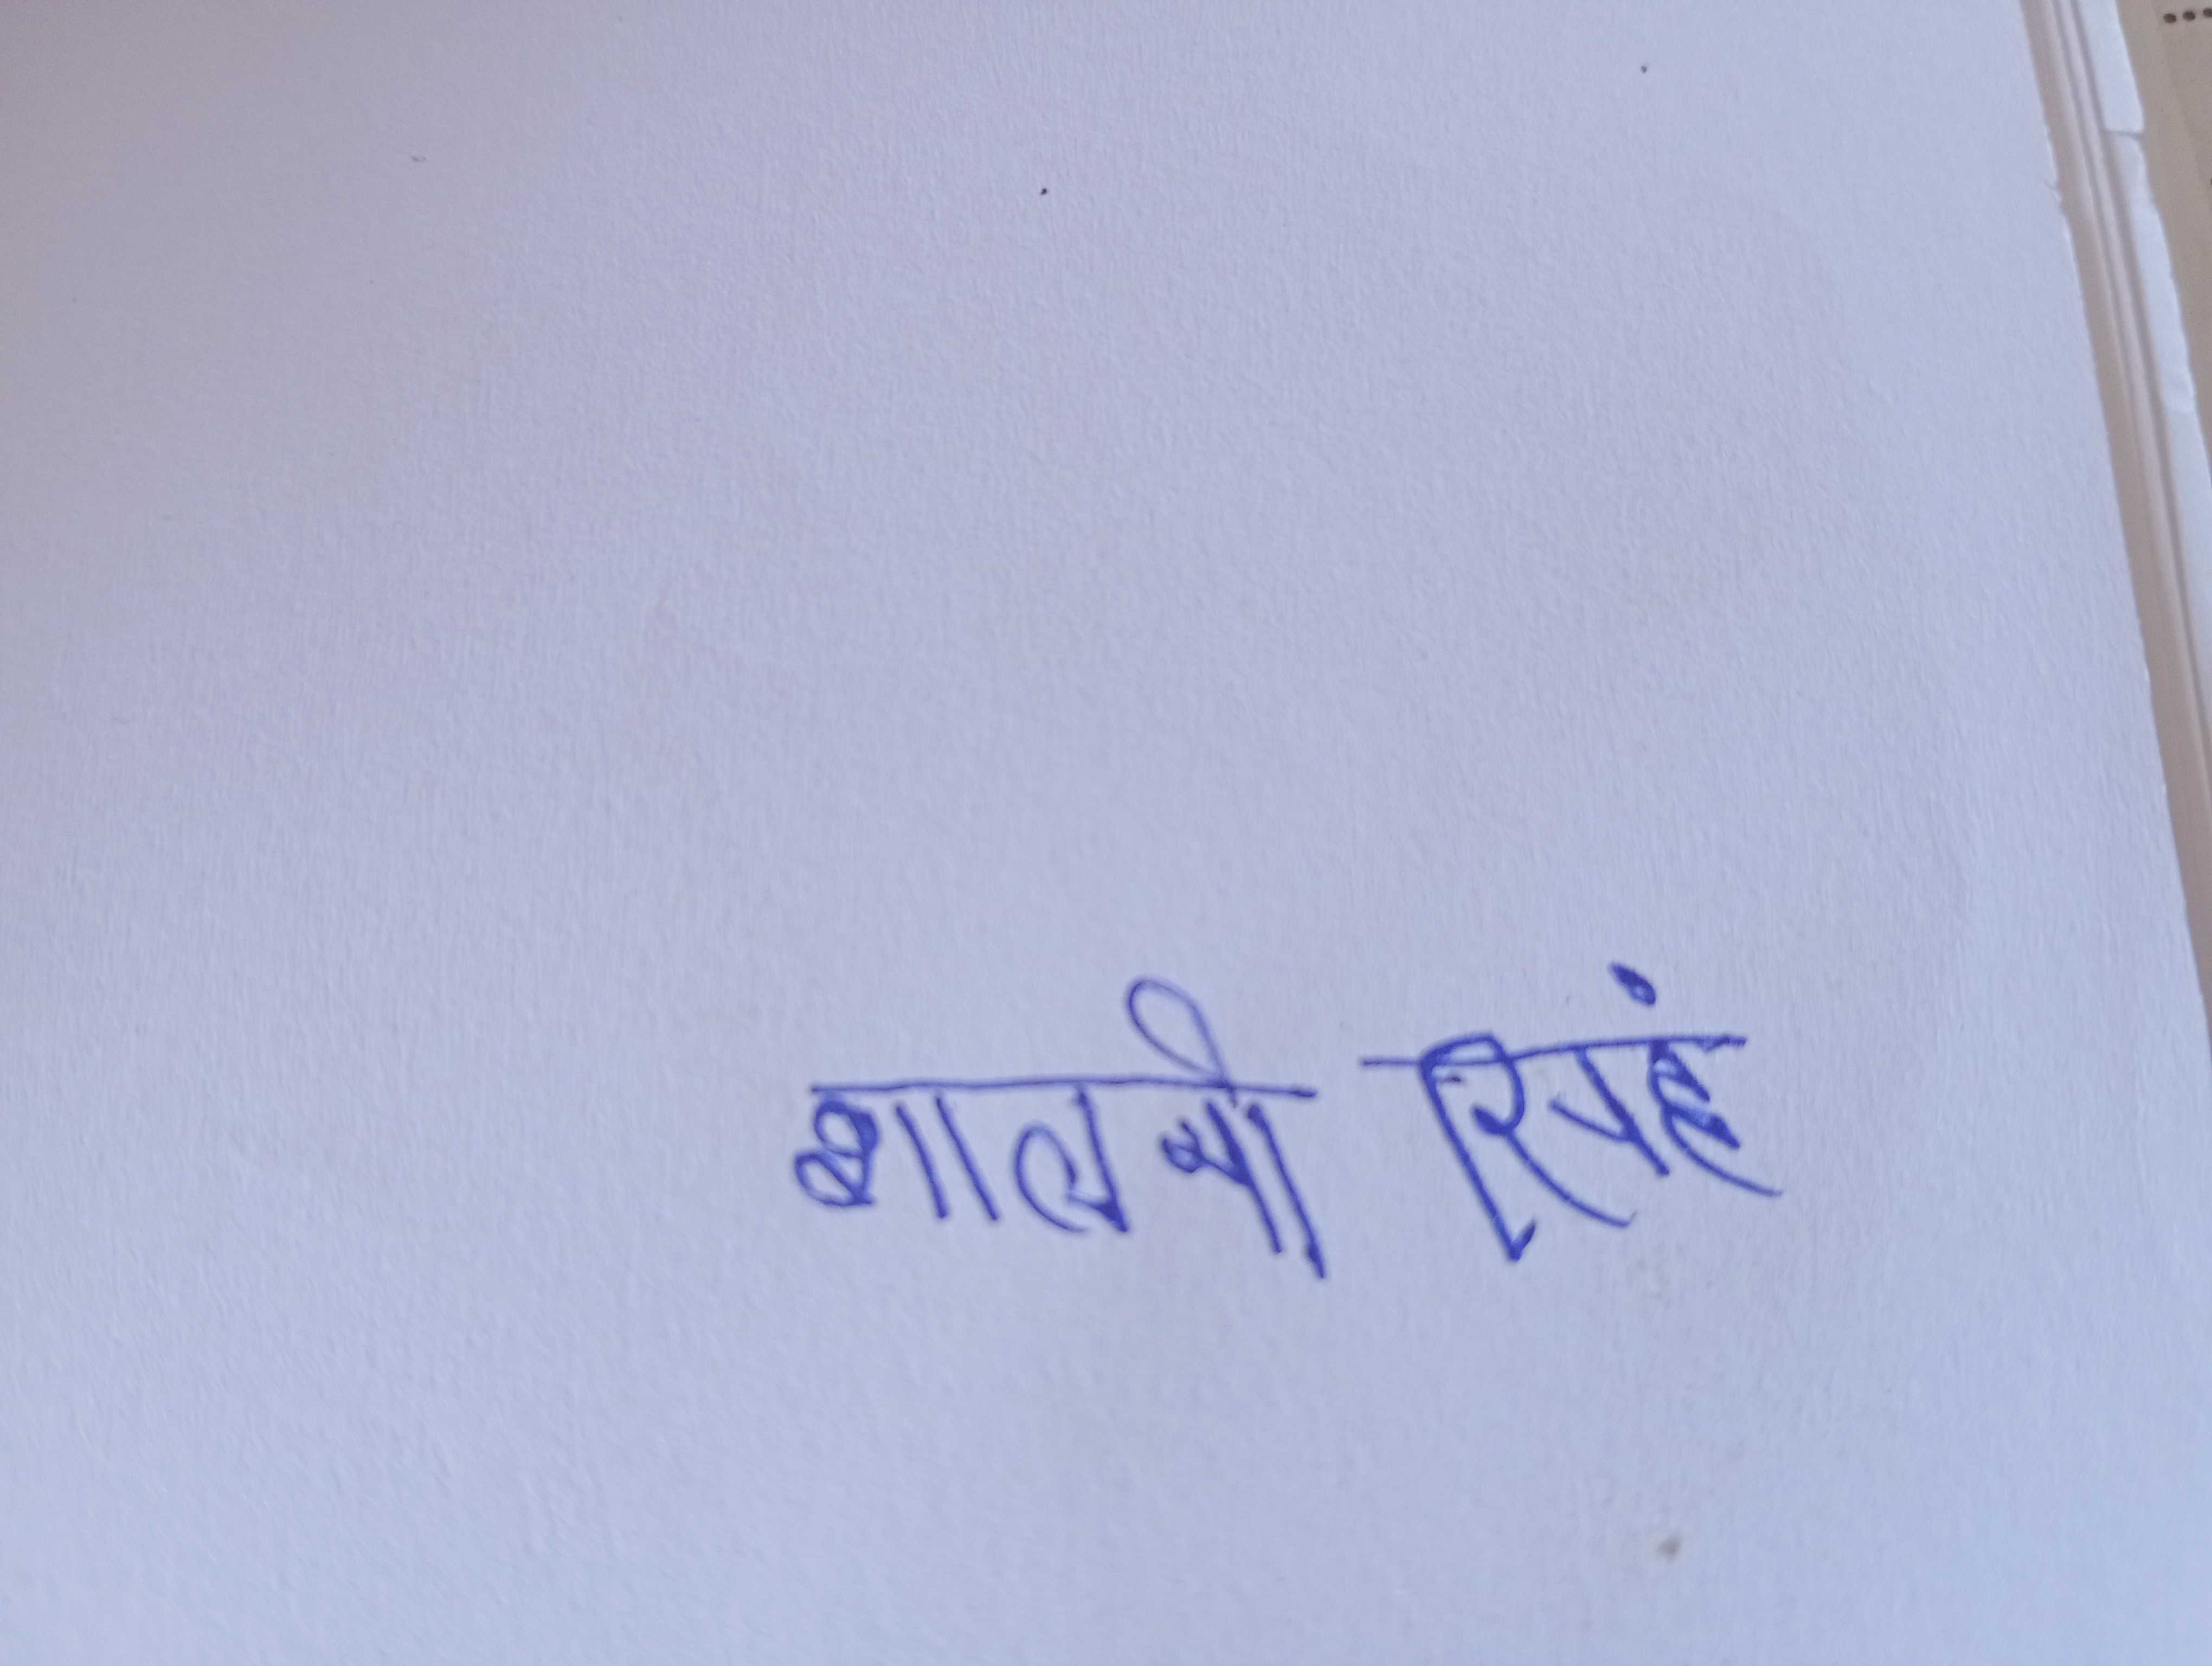 शालनी सिंह